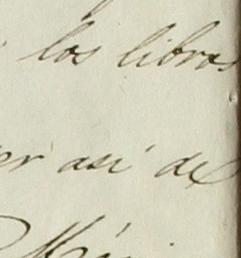 los libros
er así de